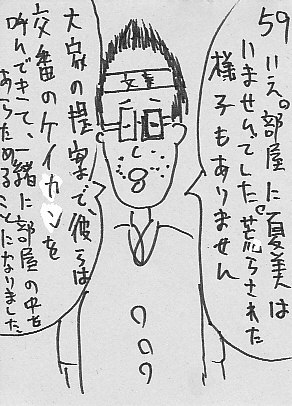 59
いえ。部屋に夏美は
いませんでした。荒らされた
様子もありません
文芸
大家の提案で、彼らは
交番のケイカンを
呼んできて、一緒に部屋の中を
あらためることになりました。